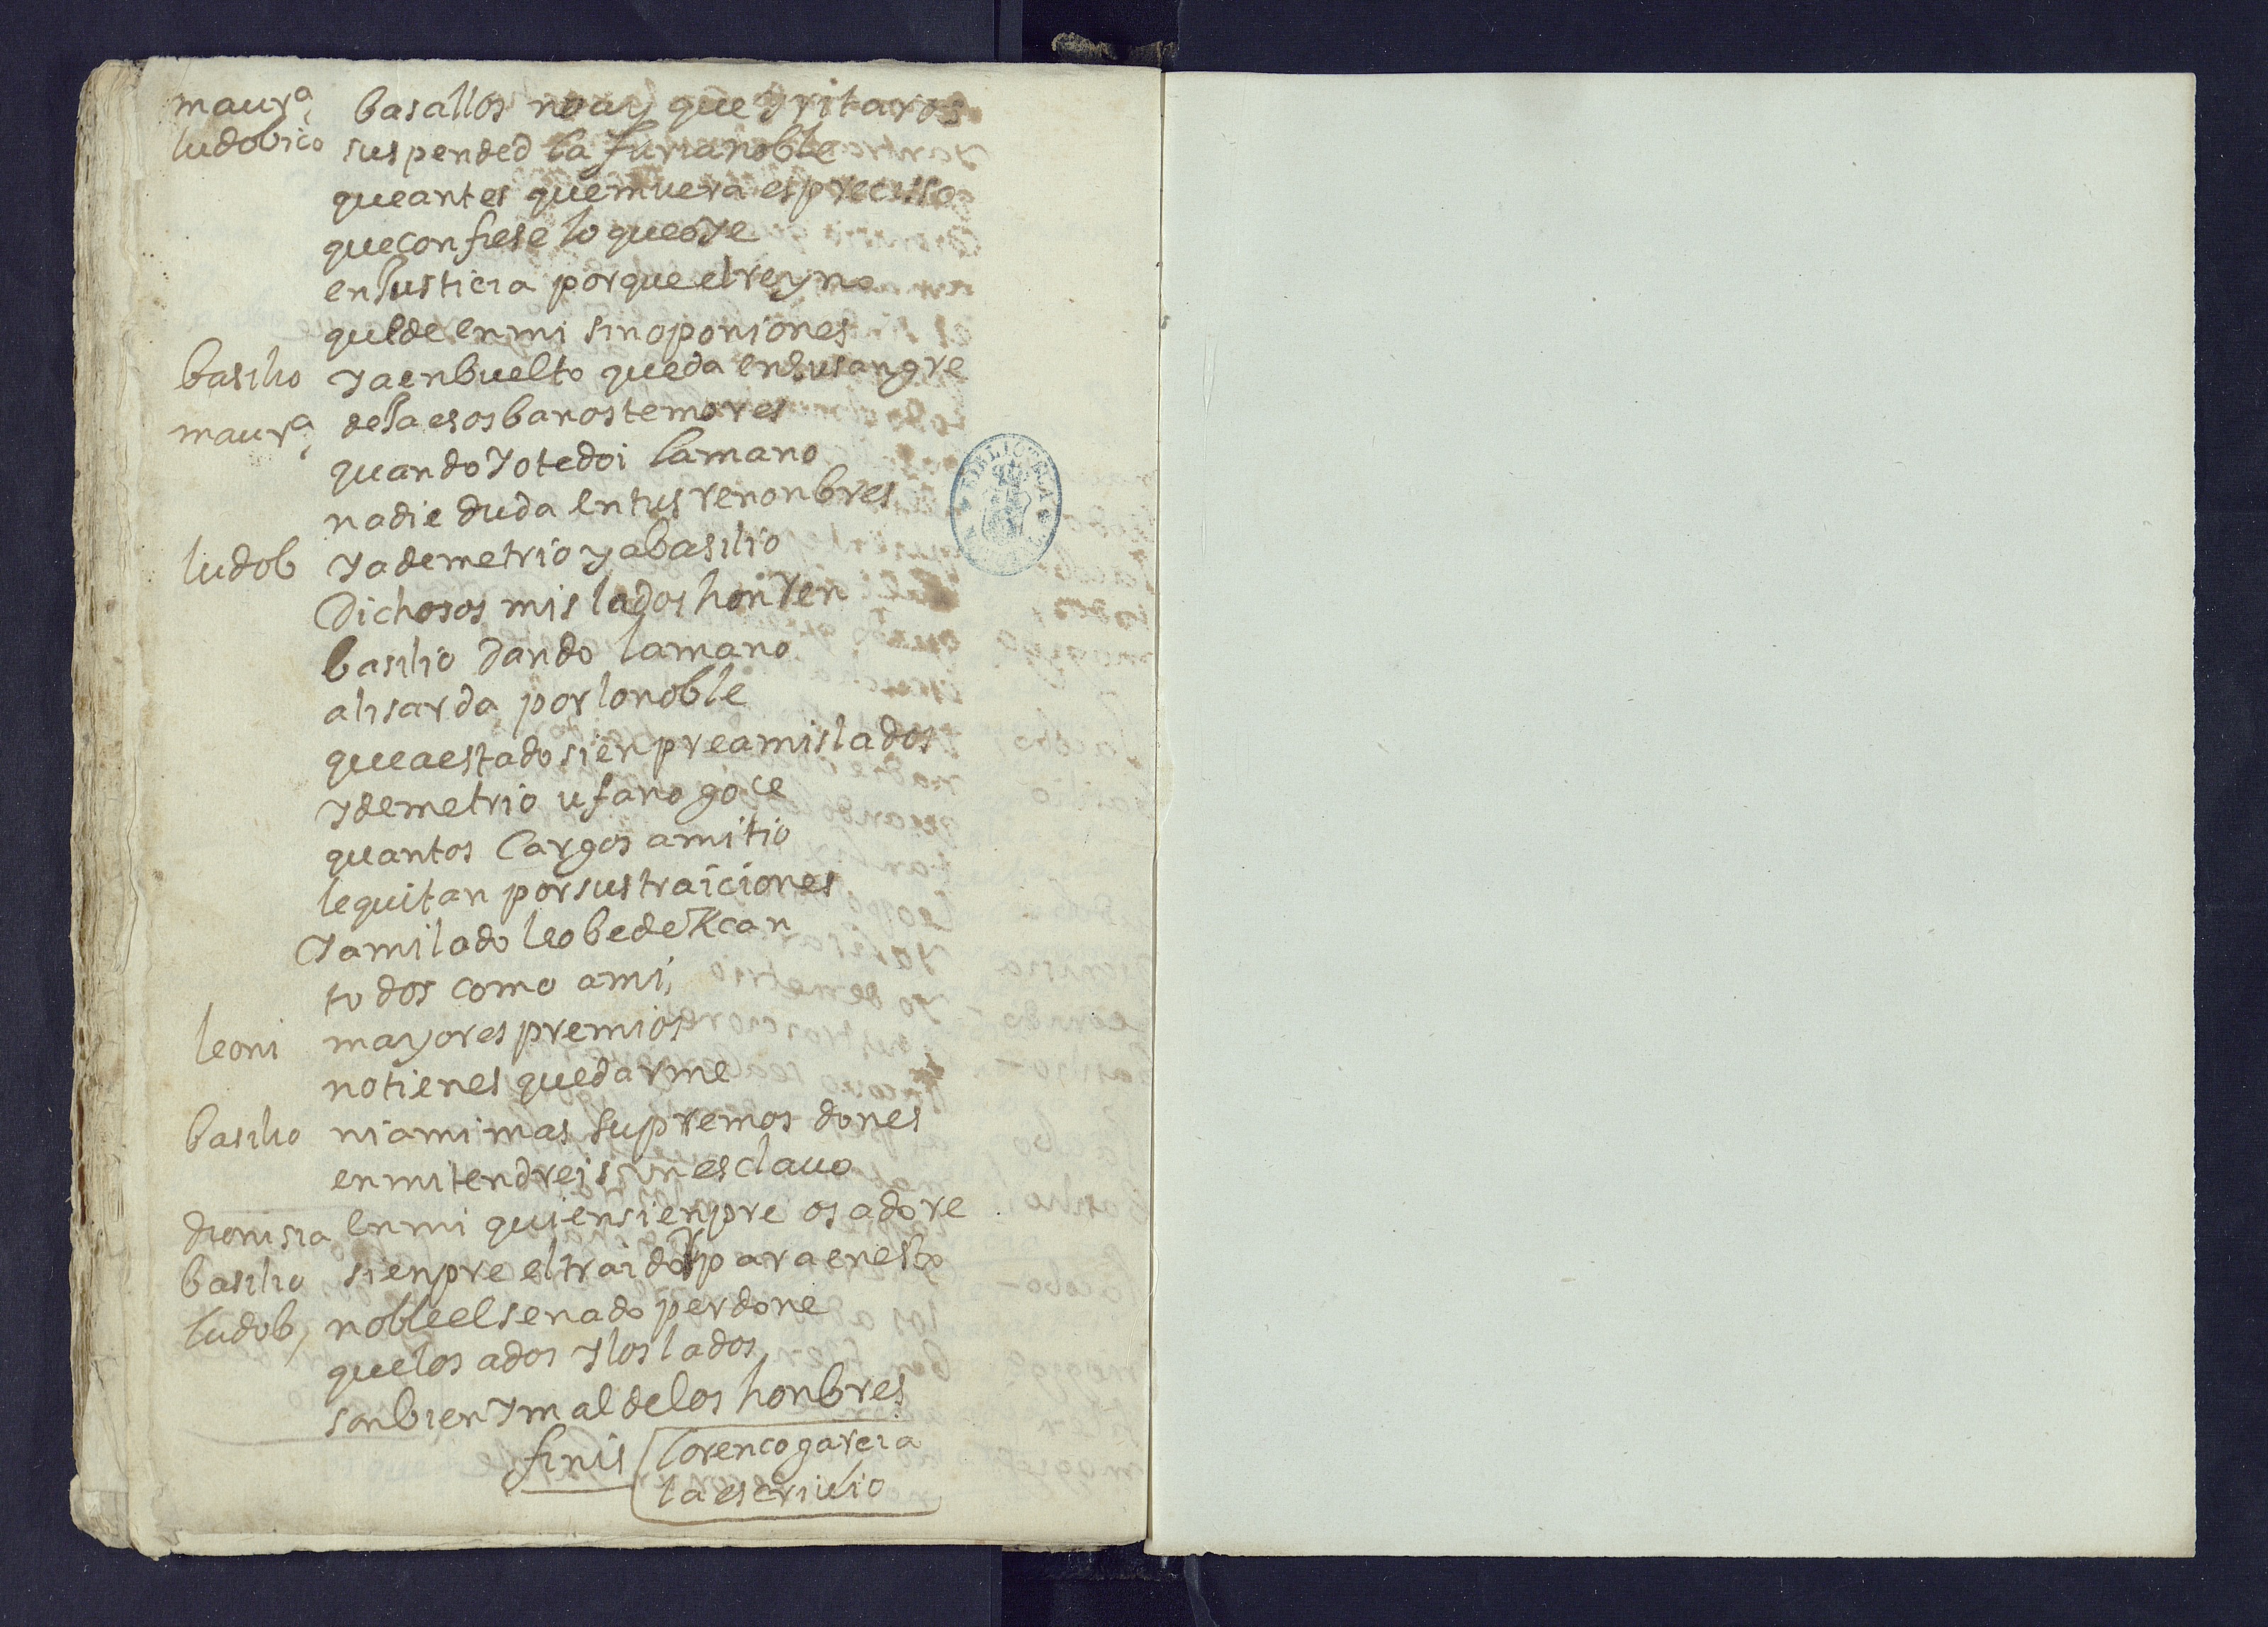 maurª basallos no ay que yritaros
ludobico suspended la furia noble
que antes que muera es precisso
que confiese lo que oye
en Justicia porque el reyno
quede en mi sin oponiones
basilio ya enbuelto queda en su sangre
maurª deJa esos banos temores
quando yo te doi la mano
nadie duda en tus renonbres
ludob y a demetrio y a basilio
Dichosos mis lados honren
basilio dando la mano
a lisarda por lo noble
que a estado sienpre a mis lados
y demetrio ufano goce
quantos cargos a mi tio
le quitan por sus traiciones
y a mi lado leobedezcan
todos como a mi,
leoni mayores premios
no tienes que darme
basilio ni a mi mas supremos dones
en mi tendreis un esclauo
dionisia en mi quien sienpre os adore
basilio sienpre el traidor para en esto
ludob, noble el senado perdone
que los ados y los lados
son bien y mal de los honbres
finis lorenco garcia
la escriuio